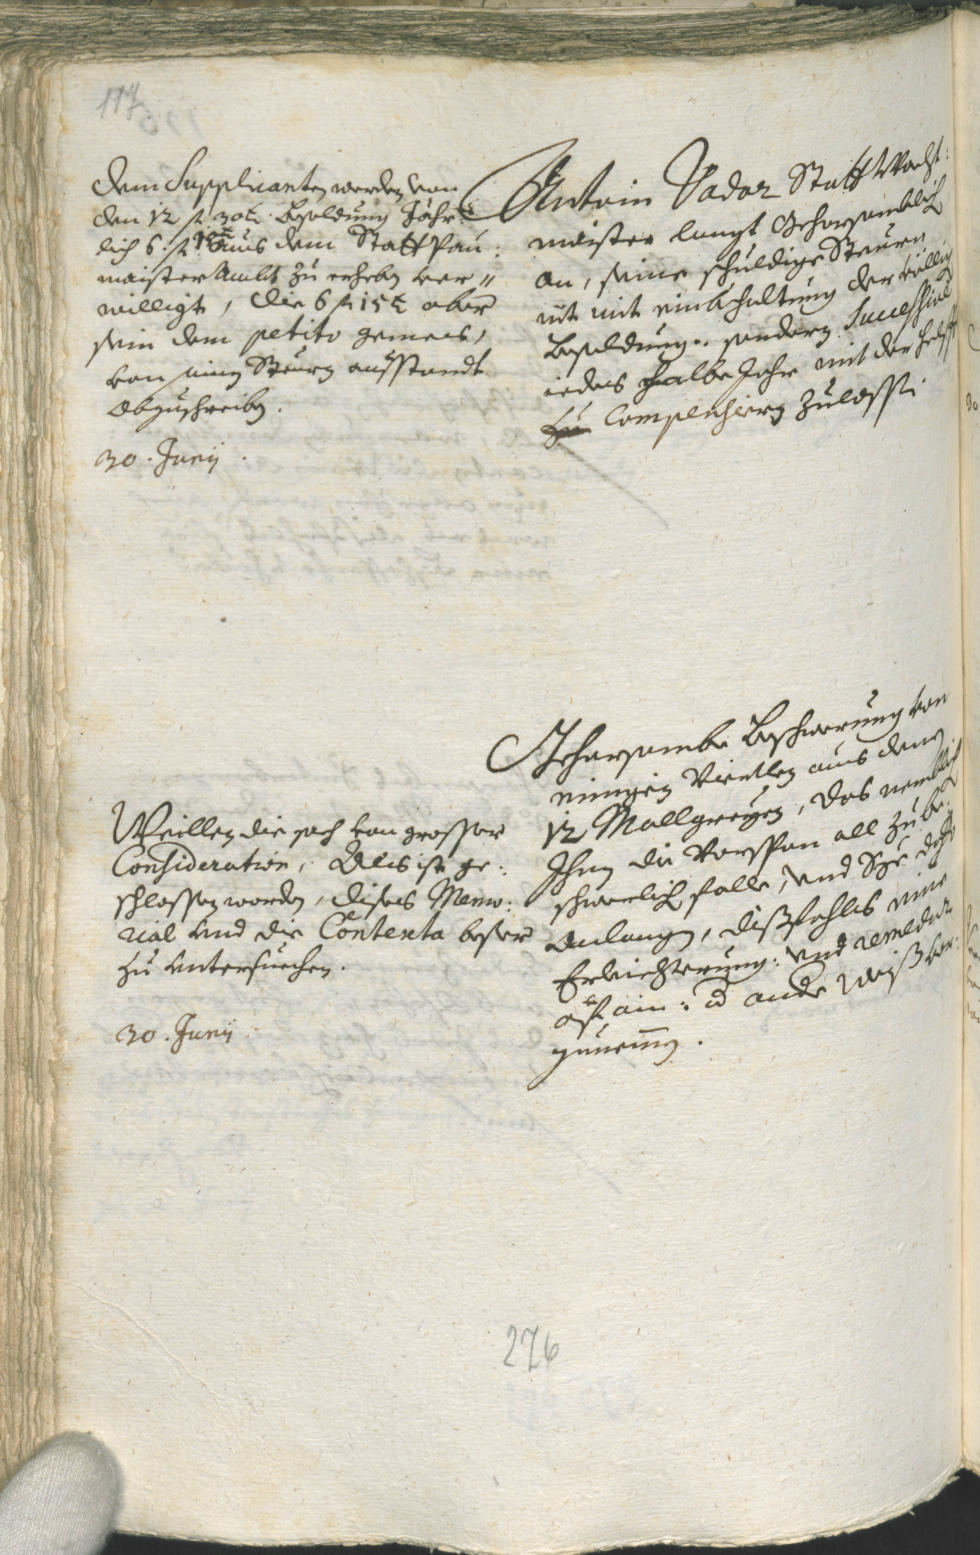 117
Dem Supplicanten werden von
den 12 f 30 x. Besoldung Jähr-
lich 6 f 15 x aus dem Statt Pau:
maister Ambt zu erheben ver„
willigt, die 6 f 15 x aber
sein dem petito gemees,
von seinen Steurn ausstandt
abzuschreiben.
30. Junij.
Antoin Vador Statt Wacht:
maister langt Gehorsamblich
an, seine schuldige Steurn
nit mit einbehaltung der völligen
Besoldung: sondern Successive
iedes halbe Jahr mit der helfft
zu Compensiern Zulassen.
Weillen die sach von grosser
Consideration, Als ist ge:
schlossen worden, dises Memo:
rial und die Contenta besser
zu untersuechen.
30. Junij
Gehorsambe Beschwerung von
einigen Viertlen aus denen
12 Mallgreyen, das nemblich
Ihnen die Vorspan all zu be:
schwerlich falle, und
Anlangen, dissfahls eine
Erleichterung: und
auf ain: oder andere weiss vor:
zunemen.
276